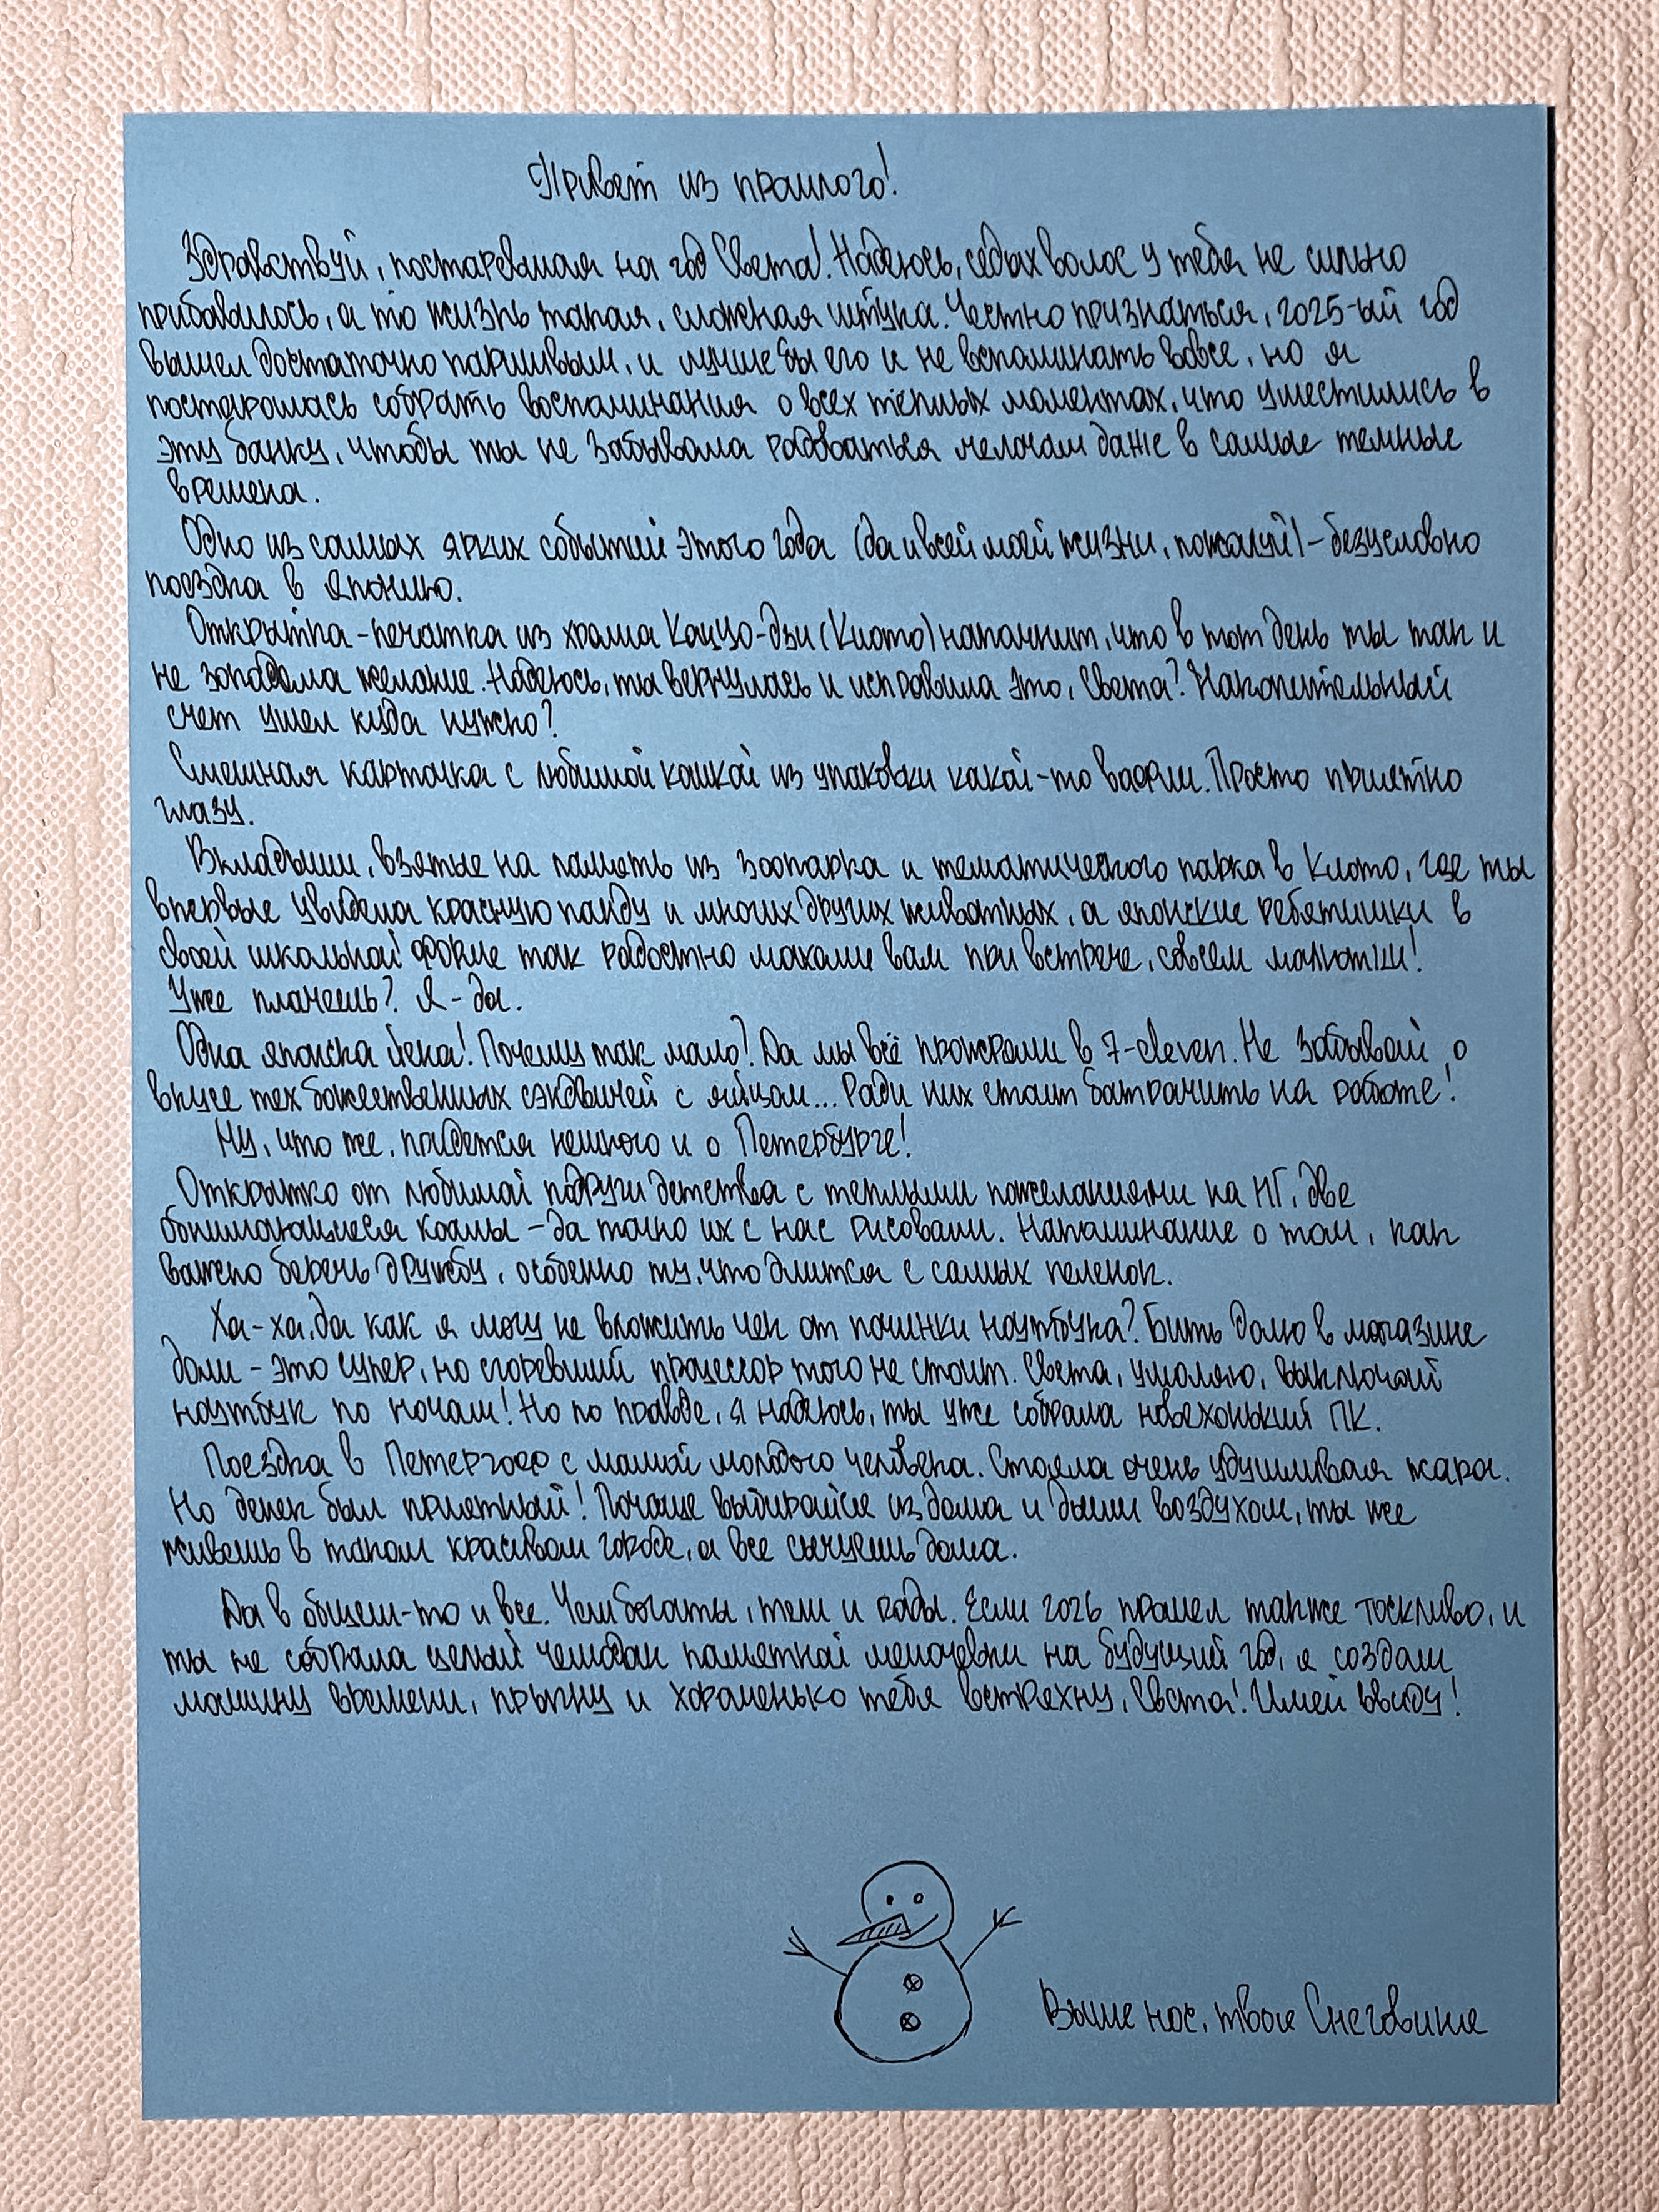 Привет из прошлого!
Здравствуй, постаревшая на год Света! Надеюсь, седых волос у тебя не сильно
прибавилось, а то жизнь такая, сложная штука. Честно признаться, 2025-ый год
вышел достаточно паршивым, и лучше бы его и не вспоминать вовсе, но я
постаралась собрать воспоминания о всех теплых моментах, что уместились в
эту банку, чтобы ты не забывала радоваться мелочам даже в самые темные
времена.
Одно из самых ярких событий этого года (да и всей моей жизни, пожалуй) – безусловно
поездка в Японию.
Открытка-печатка из храма Кацуо-дзи (Киото) напомнит, что в тот день ты так и
не загадала желание. Надеюсь, ты вернулась и исправила это, Света? Накопительный
счет ушел куда нужно?
Смешная карточка с любимой кошкой из упаковки какой-то вафли. Просто приятно
глазу.
Вкладыши, взятые на память из зоопарка и тематического парка в Киото, где ты
впервые увидела красную панду и многих других животных, а японские ребятишки в
своей школьной форме так радостно махали вам при встрече, совсем малютки!
Уже плачешь? Я - да.
Одна японска йена! Почему так мало? Да мы всё прожрали в 7-eleven. Не забывай о
вкусе тех божественных сэндвичей с яйцом... Ради них стоит батрачить на работе!
Ну, что же, придется немного и о Петербурге!
Открытко от любимой подруги детства с теплыми пожеланиями на НГ, две
обнимающиеся коалы – да точно их с нас рисовали. Напоминание о том, как
важно беречь дружбу, особенно ту, что длится с самых пеленок.
Ха-ха, да как я могу не вложить чек от починки ноутбука? Бить Долю в магазине
доли – это супер, но сгоревший процессор того не стоит. Света, умоляю, выключай
ноутбук по ночам! Но по правде, я надеюсь, ты уже собрала новехонький ПК.
Поездка в Петергоф с мамой молодого человека. Стояла очень удушливая жара.
Но денек был приятный! Почаще выбирайся из дома и дыши воздухом, ты же
живешь в таком красивом городе, а все сычуешь дома.
Да в общем-то и все. Чем богаты, тем и рады. Если 2026 прошел также тоскливо, и
ты не собрала целый чемодан памятной мелочевки на будущий год, я создам
машину времени, прыгну и хорошенько тебя встряхну, Света! Имей ввиду!
Выше нос, твое Снеговише